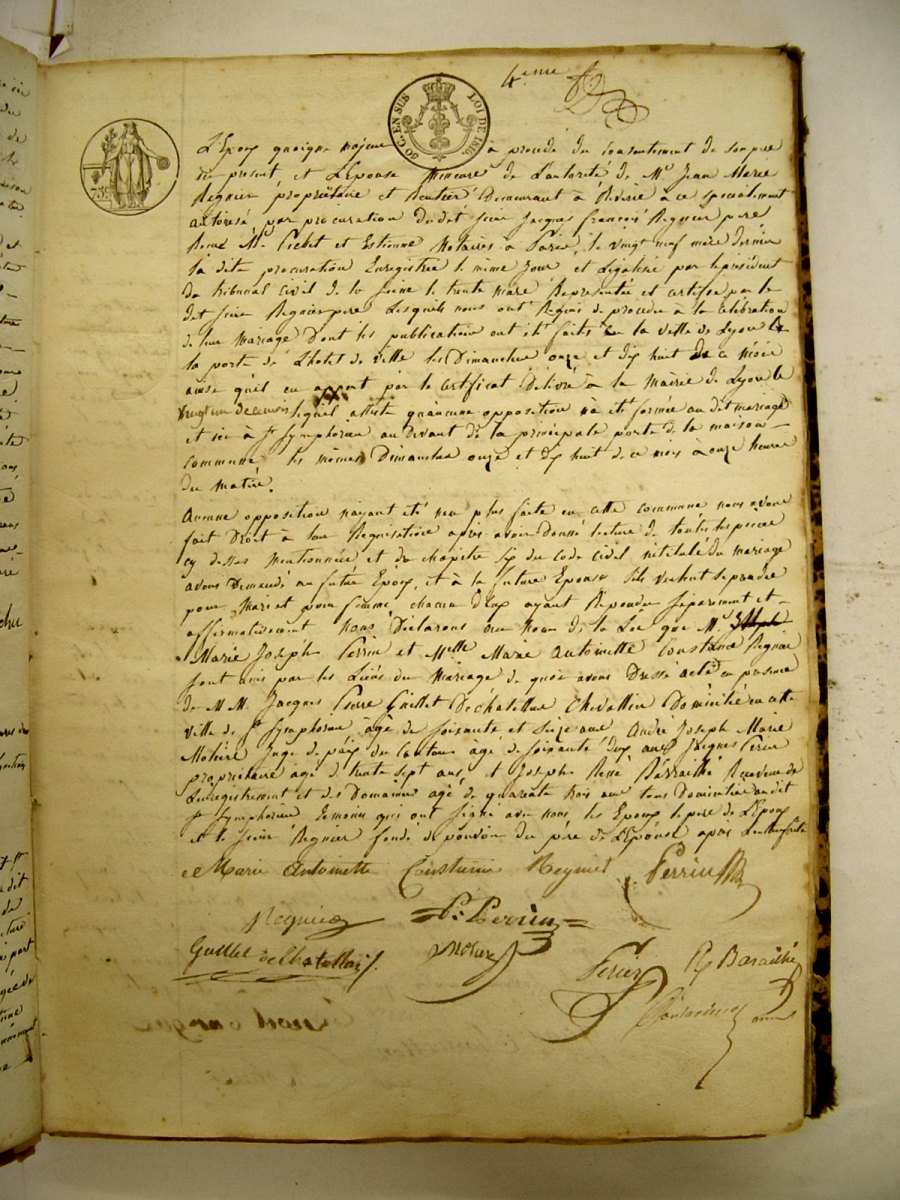 4.eme
50 C. EN SUS LOI DE 1816
75C
L'Epoux quoique majeur a procédé du consentement de son père
icy present et L'Epouse mineure de L'autorité de Mr Jean Marie
Regnier propriétaire et Rentier Demeurant à Riverie a ce specialement
autorisé par procuration dudit sieur Jacques françois Regnier père
Reçue Me et Estienne Notaires à Paris, le vingt neuf mars dernier
la dite procuration Enregistrée le même jour et Légalisée par le président
du tribunal Civil de la seine le trente mars Représentée et certifiée par le
dit sieur Regnier père Lesquels nous ont Requis de proceder à la célébration
de leur mariage Dont les publications ont été faites en la ville de Lyon
la porte de L'hotel de ville les Dimanches onze et dix huit de ce mois
ainsi qu'il en appert par le certificat Délivré à la Mairie de Lyon le
vingt un de ce mois lequel atteste qu'aucune opposition n'a été formée au dit mariage
et ici à St Symphorien au Devant de la principale porte de la maison
commune les mêmes Dimanches onze et dix huit de ce mois à onze heures
du matin.
Aucune opposition n'ayant été non plus faite en cette commune nous avons
fait Droit à leur Requisition après avoir Donné lecture de toutes les pieces
cy dessus mentionnées et du chapitre six du code civil intitulé du mariage
avons Demandé au futur Epoux, et à la future Epouse s'ils veulent se prendre
pour Mari et pour femme, chacun D'eux ayant Répondu séparement et
affirmativement Nous Déclarons au Nom de la Loi que Mr
Marie Joséph Perrin et Melle Marie Antoinette Constance Regnier
sont unis par les Liens du Mariage de quoi avons Dressé acte en présence
de M.M. Jacques Pierre Guillet Dechatellus Chevallier Domicilié en cette
ville de St Symphorien agé de soixante et seize ans André Joseph Marie
Molière Juge de paix du canton agé de soixante dix ans Jacques
propriétaire agé de trente sept ans, et Joseph René Barrailhé Receveur de
L'enregistrement et des Domaines agé de quarante trois ans tous Domiciliés au dit
St Symphorien témoins qui ont signé avec nous les Epoux, le père de L'Epoux
et le sieur Regnier fondé de pouvoir du père de L'Epouse après Lecture faite
Marie Antoinette Constance Regnier Perrin
Regnier P. Perrin
Guillet de Chatellus Molière
Barailhé